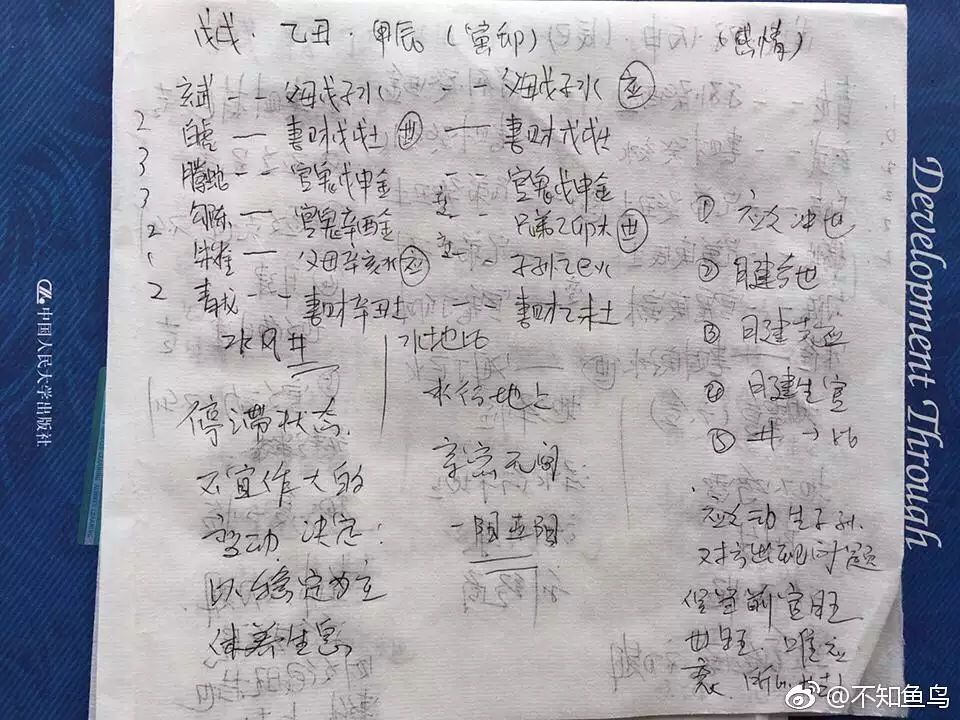 戊戌·乙丑·甲辰(寅卯) (感情)
玄武 -- 父母戊子水 -- 父母戊子水 应
2 白虎 — 妻财戊戌土 世 — 妻财戊戌土
3 腾蛇 -- 官鬼戊申金 -- 官鬼戊申金
3 勾陈 — 官鬼辛酉金 -- 兄弟乙卯木 世
2 朱雀 — 父母辛亥水 应 -- 子孙乙巳火
2 青龙 -- 妻财辛丑土 妻财乙未土
水风井 水地比
停滞状态
不宜作大的
变动 决定:
以稳定为主
休养生息
水行地上
亲密无间
一阳五阴
① 应爻冲世
② 日建合世
③ 日建克应
④ 日建生官
⑤ 井→比
应爻动生子孙
对方出现问题
但室前官旺
世旺 唯应
衰
中国人民大学出版社
Development Through
@不知鱼鸟